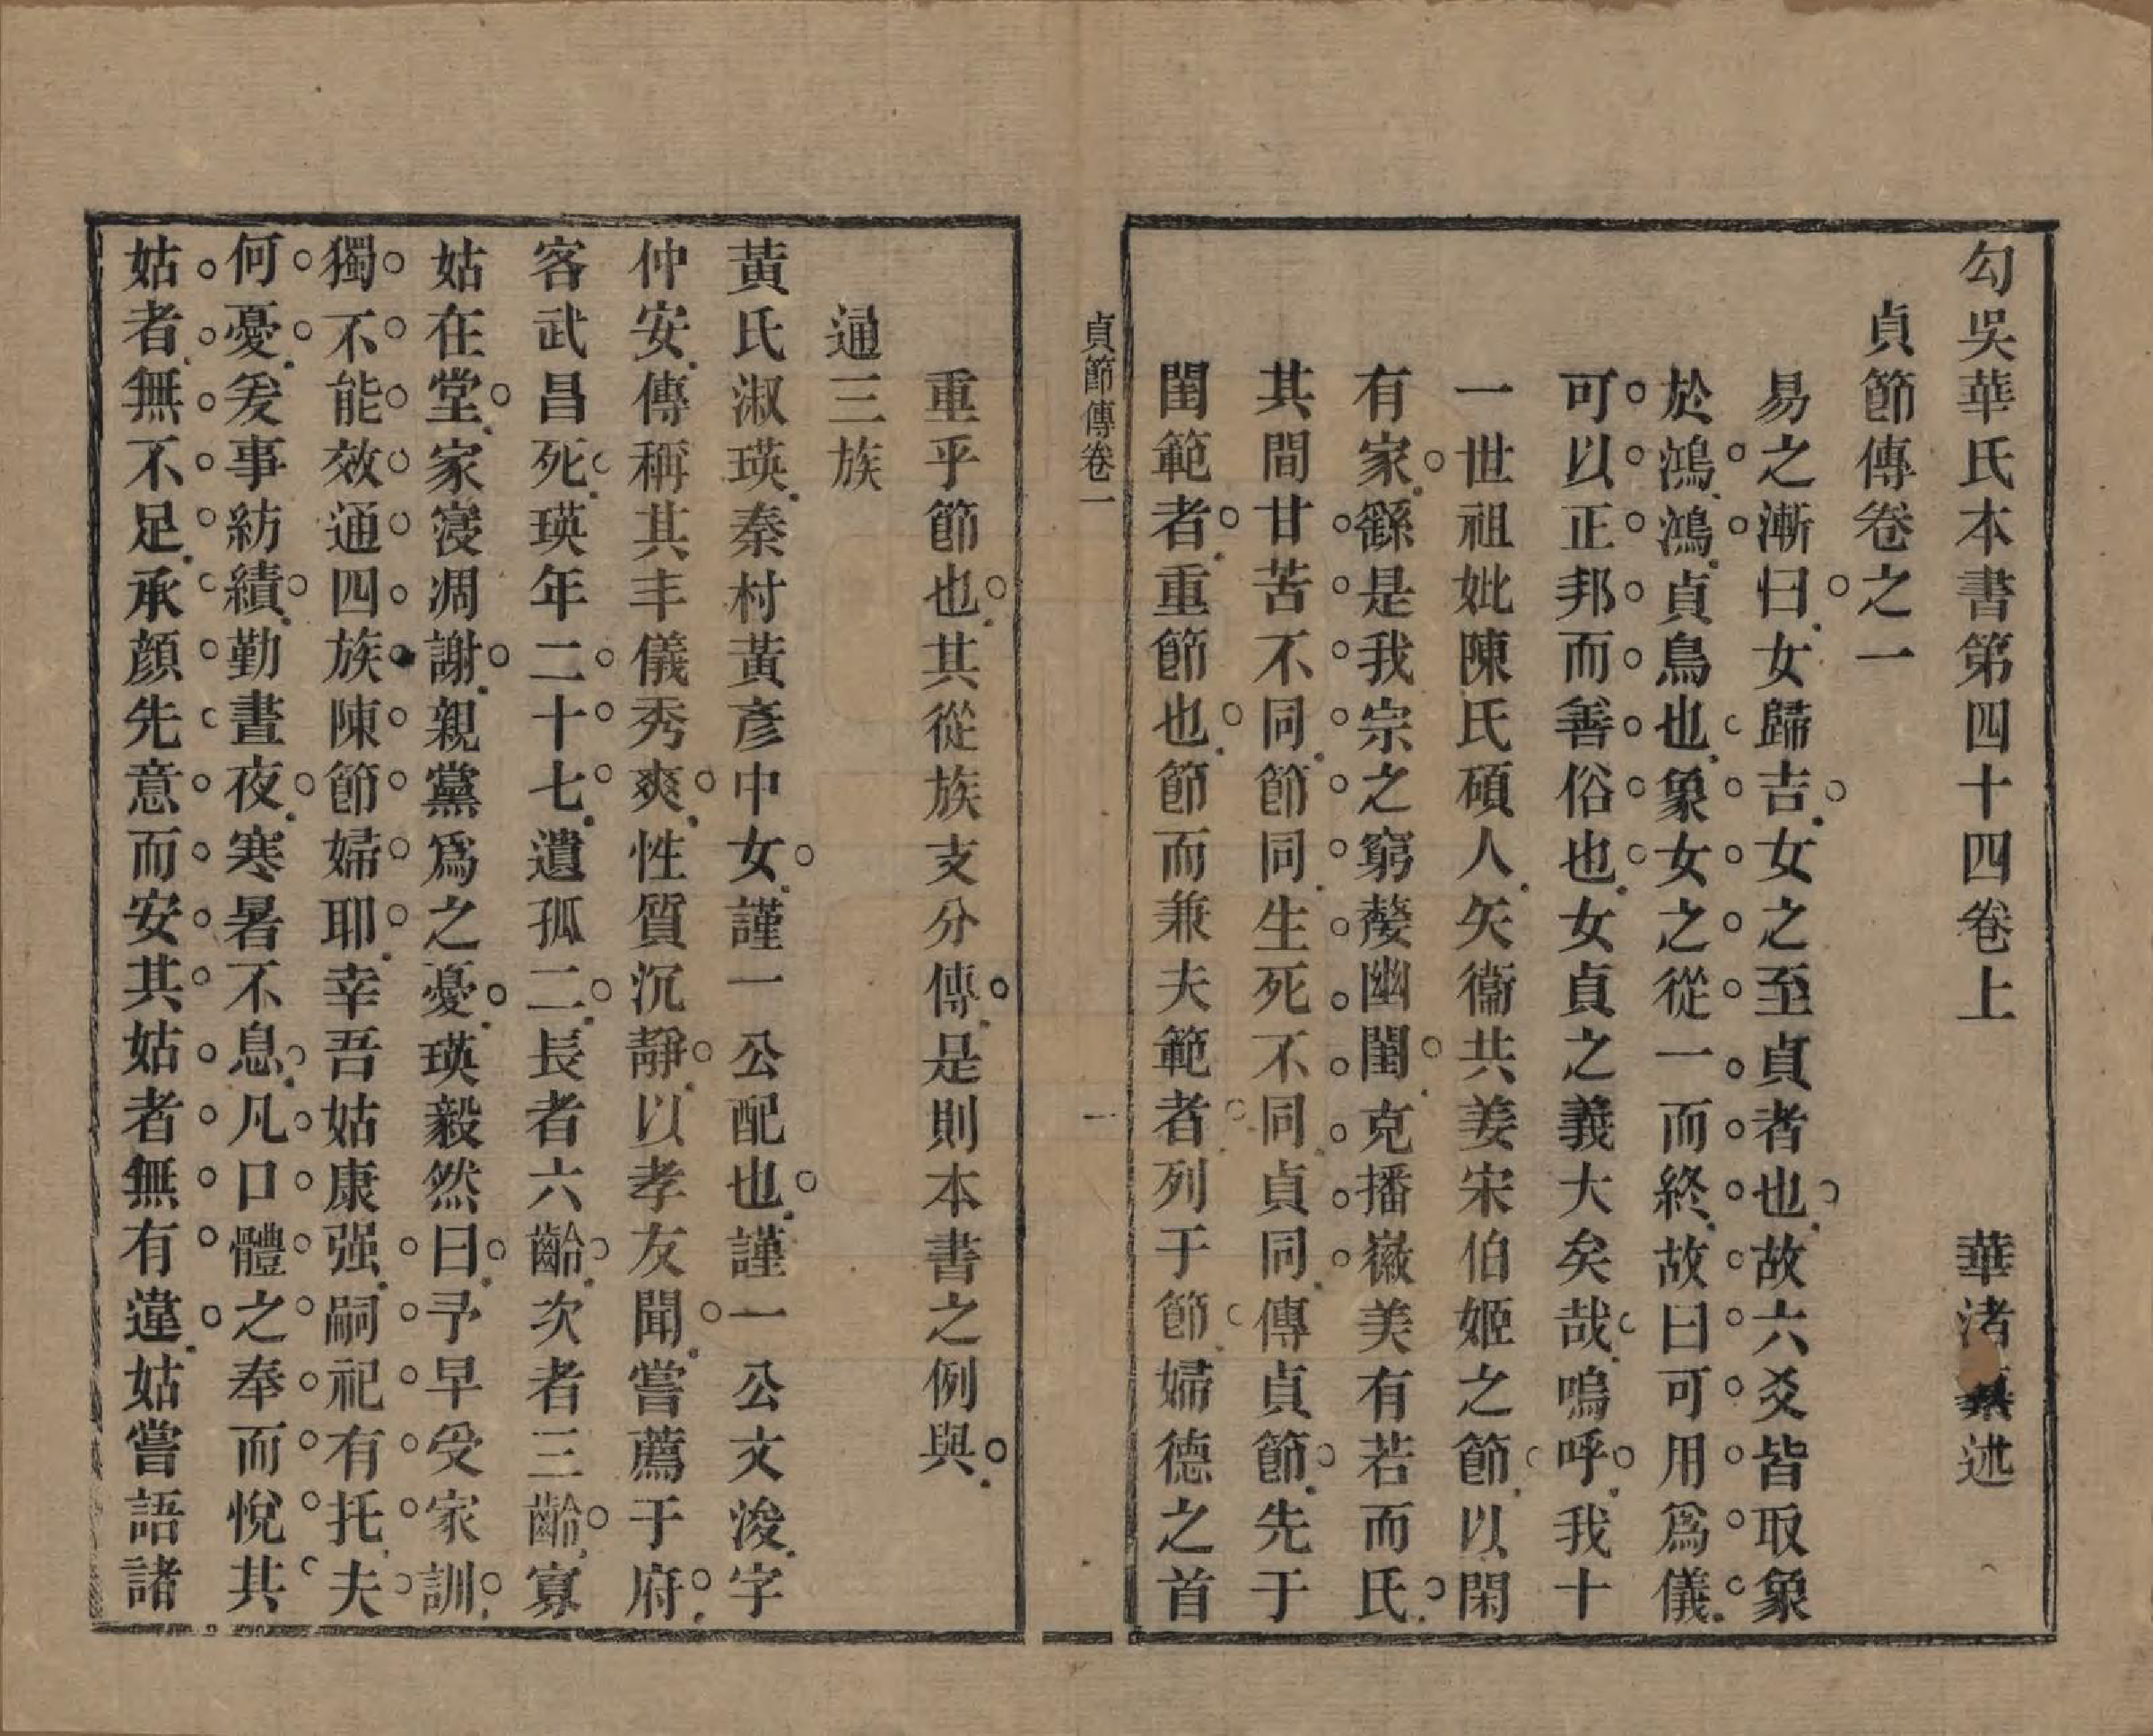 勾吳華氏本書第四十四卷上　華渚述
貞節傳卷之一
易之漸曰女歸吉女之至貞者也故六爻皆取象
於鴻鴻貞鳥也象女之從一而終故曰可用爲儀
可以正邦而善俗也女貞之義大矣哉嗚呼我十
一世祖妣陳氏碩人矢衞共姜宋伯姬之節以閑
有家繇是我宗之窮嫠幽閨克播徽美有若而氏
其間甘苦不同節同生死不同貞同傳貞節先于
閨範者重節也節而兼夫範者列于節婦德之首
貞節傳卷一
一
重乎節也其從族支分傳是則本書之例與
通三族
黃氏淑瑛秦村黃彥中女謹一公配也謹一公文浚字
仲安傳稱其丰儀秀爽性質沉靜以孝友聞嘗薦于府
客武昌死瑛年二十七遺孤二長者六齡次者三齡寡
姑在堂家寖凋謝親黨爲之憂瑛毅然曰予早受家訓
獨不能效通四族陳節婦耶幸吾姑康强嗣祀有托夫
何憂爰事紡績勤晝夜寒暑不息凡口體之奉而悅其
姑者無不足承顏先意而安其姑者無有違姑嘗語諸